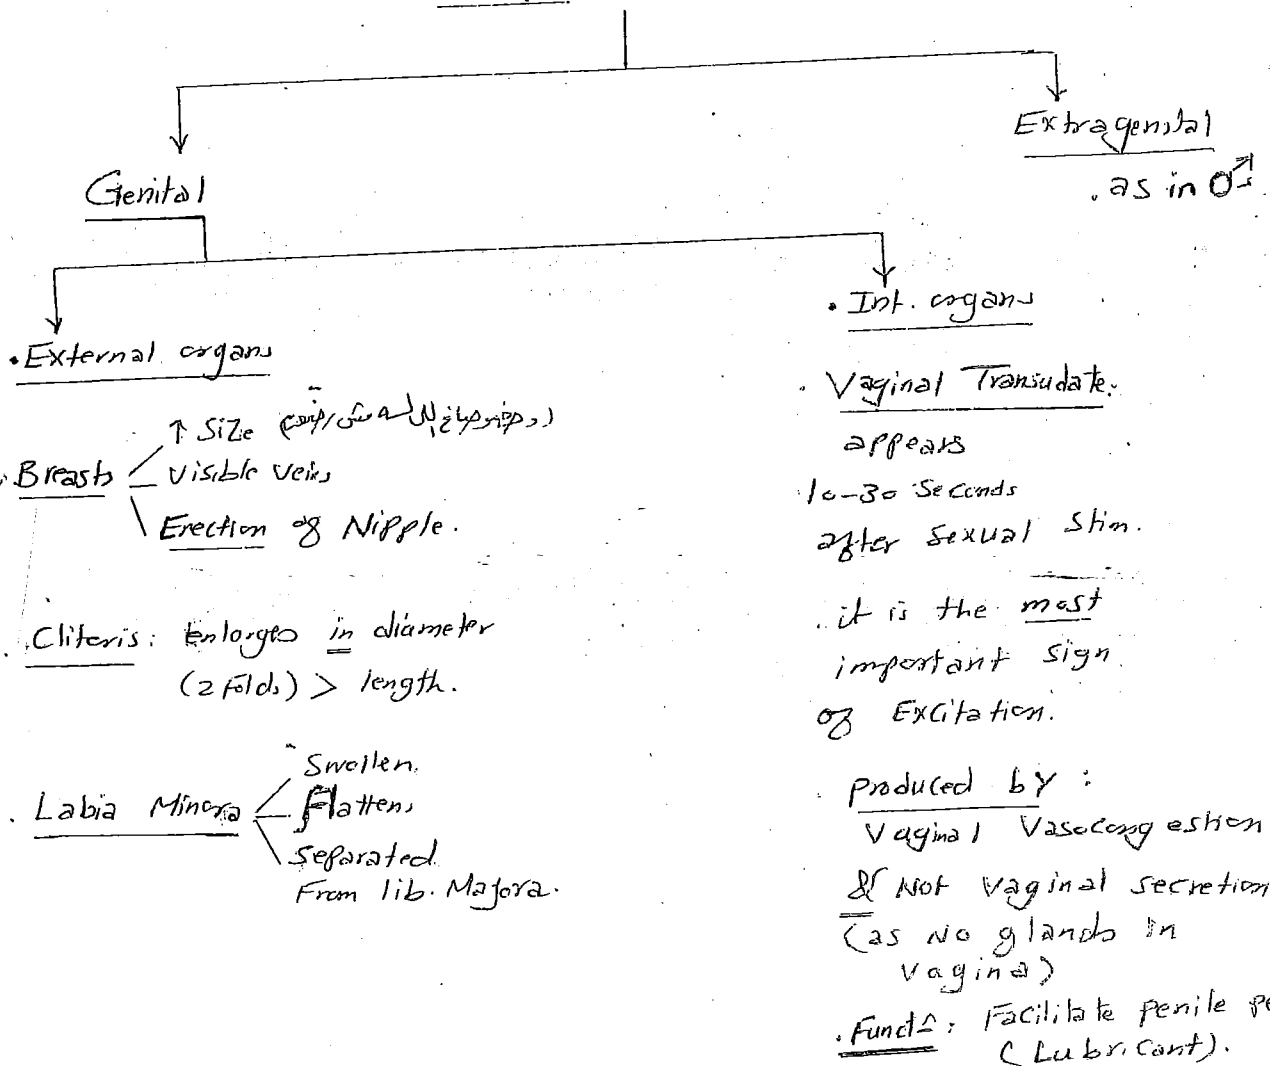 Extragenital
. as in ♂s
Genital
. External organs
. Breasts
↑ Size
Visible Veins
Erection of Nipple.
. Clitoris: Enlarges in diameter
(2 Folds) > length.
. Labia Minora
Swollen.
Flattens
Separated
From lib. Majora.
. Int. organs
. Vaginal Transudate.
appears
10-30 Seconds
after Sexual Stim.
. it is the most
important sign
of Excitation.
. Produced by :
Vaginal Vasocongestion
& Not vaginal secretion
(as No glands in
vagina)
. Functn: Facilitate penile pe
(Lubricant).